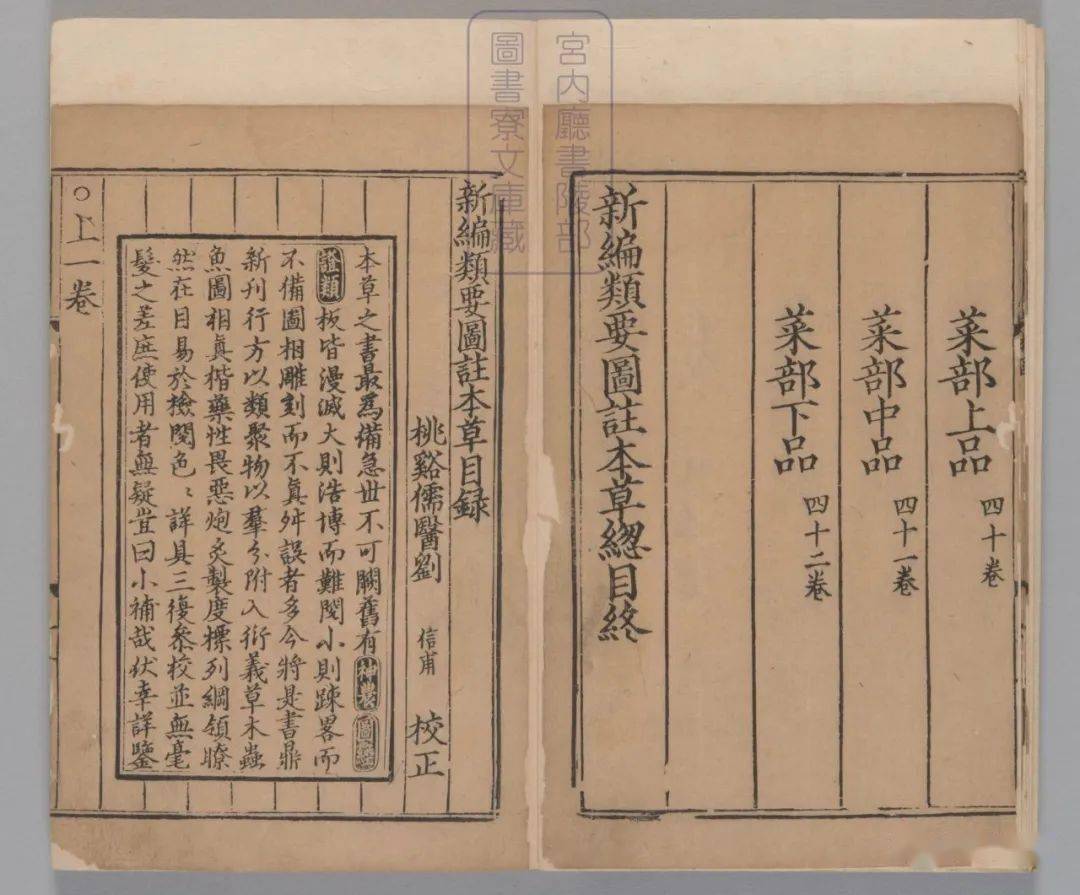 菜部上品 四十卷
菜部中品 四十一卷
菜部下品 四十二卷
新編類要圖註本草緫目終
宮内廳書陵部
圖書寮文庫藏
新編類要圖註本草目録
桃谿儒醫劉 信甫 校正
本草之書最爲備急世不可闕舊有神農圖經
證類板皆漫滅大則浩博而難閱小則踈畧而
不備圖相雕刻而不真舛誤者多今將是書鼎
新刊行方以類聚物以羣分附入衍義草木蟲
魚圖相真楷藥性畏惡炮炙製度摽列綱領瞭
然在目易於檢閱色〻詳具三復叅校並無毫
髮之差庶使用者無疑豈曰小補哉伏幸詳鑒
○上一卷